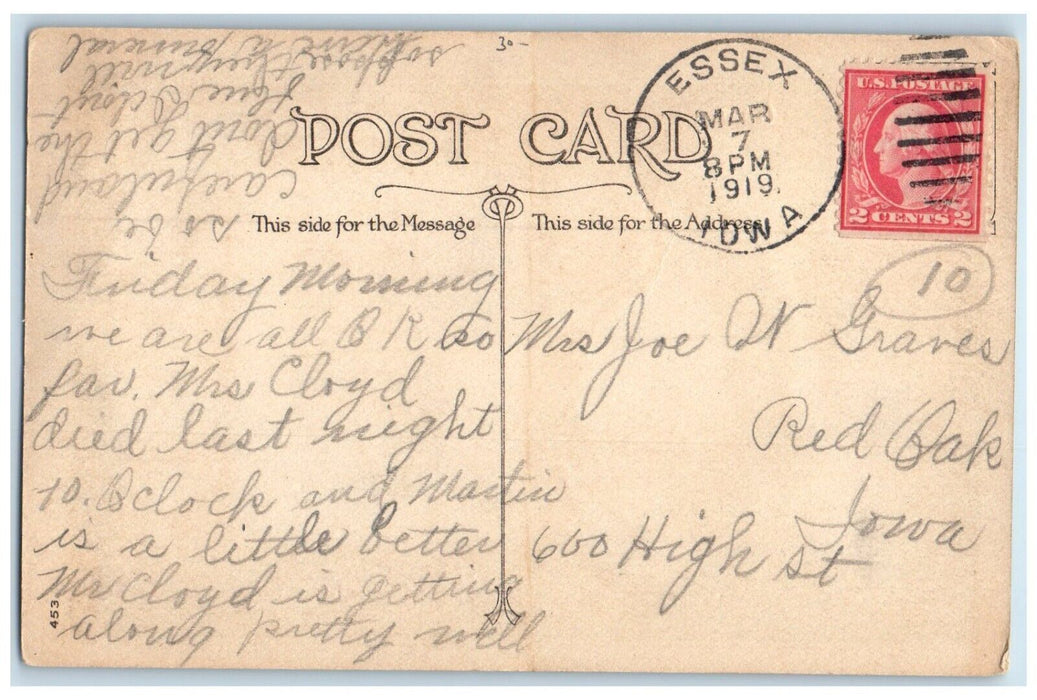 30-
POST CARD
This side for the Message
This side for the Address
ESSEX
MAR
7
8PM
1919
IOWA
U.S. POSTAGE
2 CENTS 2
10
Friday Morning
we are all O K so
far. Mrs Cloyd
died last night
10. Oclock and Martin
is a little better
Mr Cloyd is getting
along pretty well
suppose they will
have a funeral
so be
careful and
dont get the
flue
Mrs Joe W Graves
Red Oak
Iowa
600 High St
453